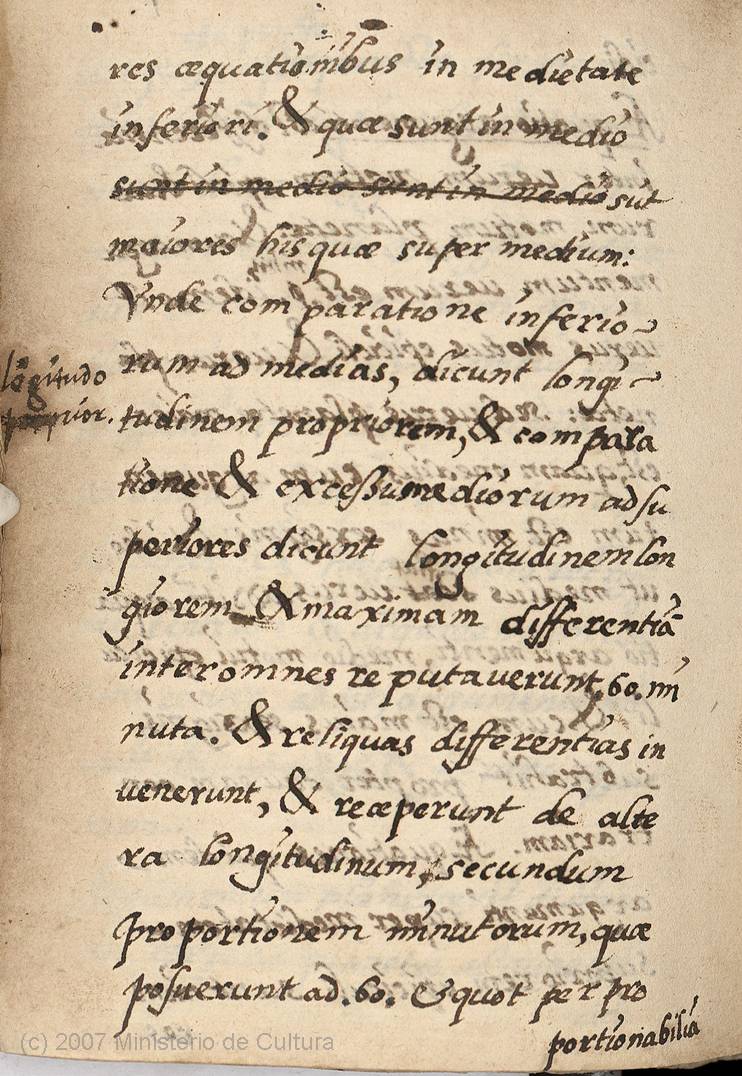 res æquationibus in medietate
inferiori. & quæ sunt in medio
sunt in medio sunt in medio sũt
maiores his quæ super medium:
Vnde comparatione inferio-
rum ad medias, dicunt longi-
lõgitudo
propior.
tudinem propriorem, & compara
tione & excessu mediorum ad su
periores dicunt longitudinem lon
giorem & maximam differentiã
inter omnes reputaverunt .60. mi
nuta. & reliquas differentias in
venerunt, & reæperunt de alte
ra longitudinum, secundum
proportionem minutorum, quæ
posuerunt ad .60. & quot per pro
portionabiliã
(c) 2007 Ministerio de Cultura